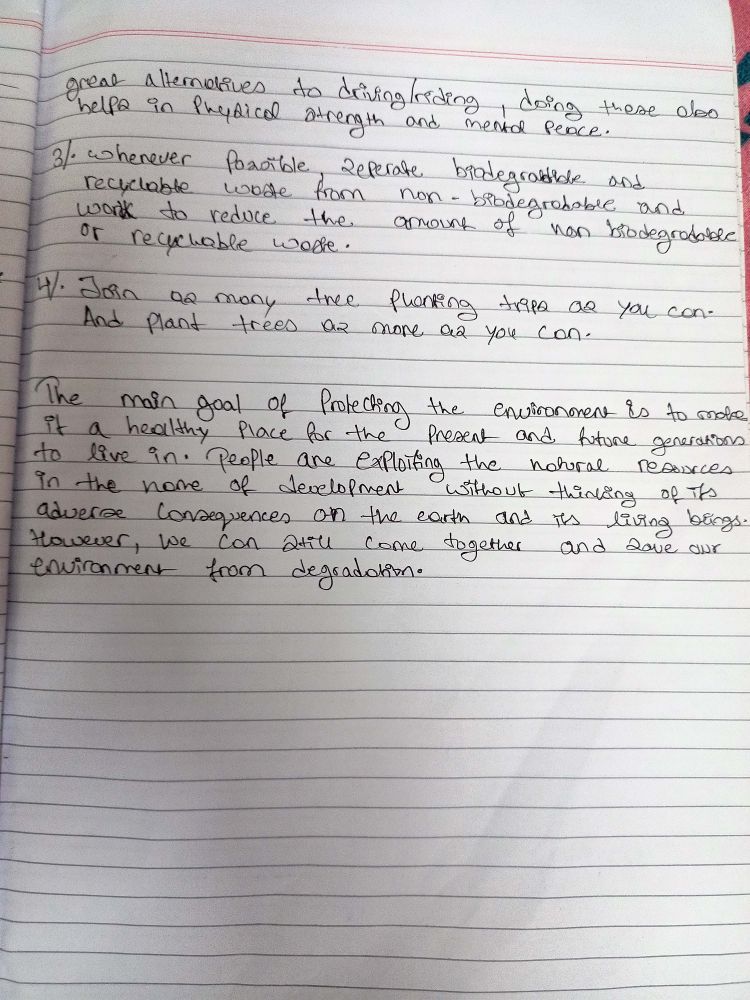 great alternatives to driving/riding, doing these also
helps in physical strength and mental peace.
3/. Whenever possible, seperate biodegradable and
recyclable waste from non-biodegradable and
work to reduce the amount of non biodegradable
or recyclable waste.
4/. Join as many tree planting trips as you can.
And plant trees as more as you can.
The main goal of protecting the environment is to make
it a healthy place for the present and future generations
to live in. People are exploiting the natural resources
in the name of development without thinking of its
adverse consequences on the earth and its living beings.
However, we can still come together and save our
environment from degradation.